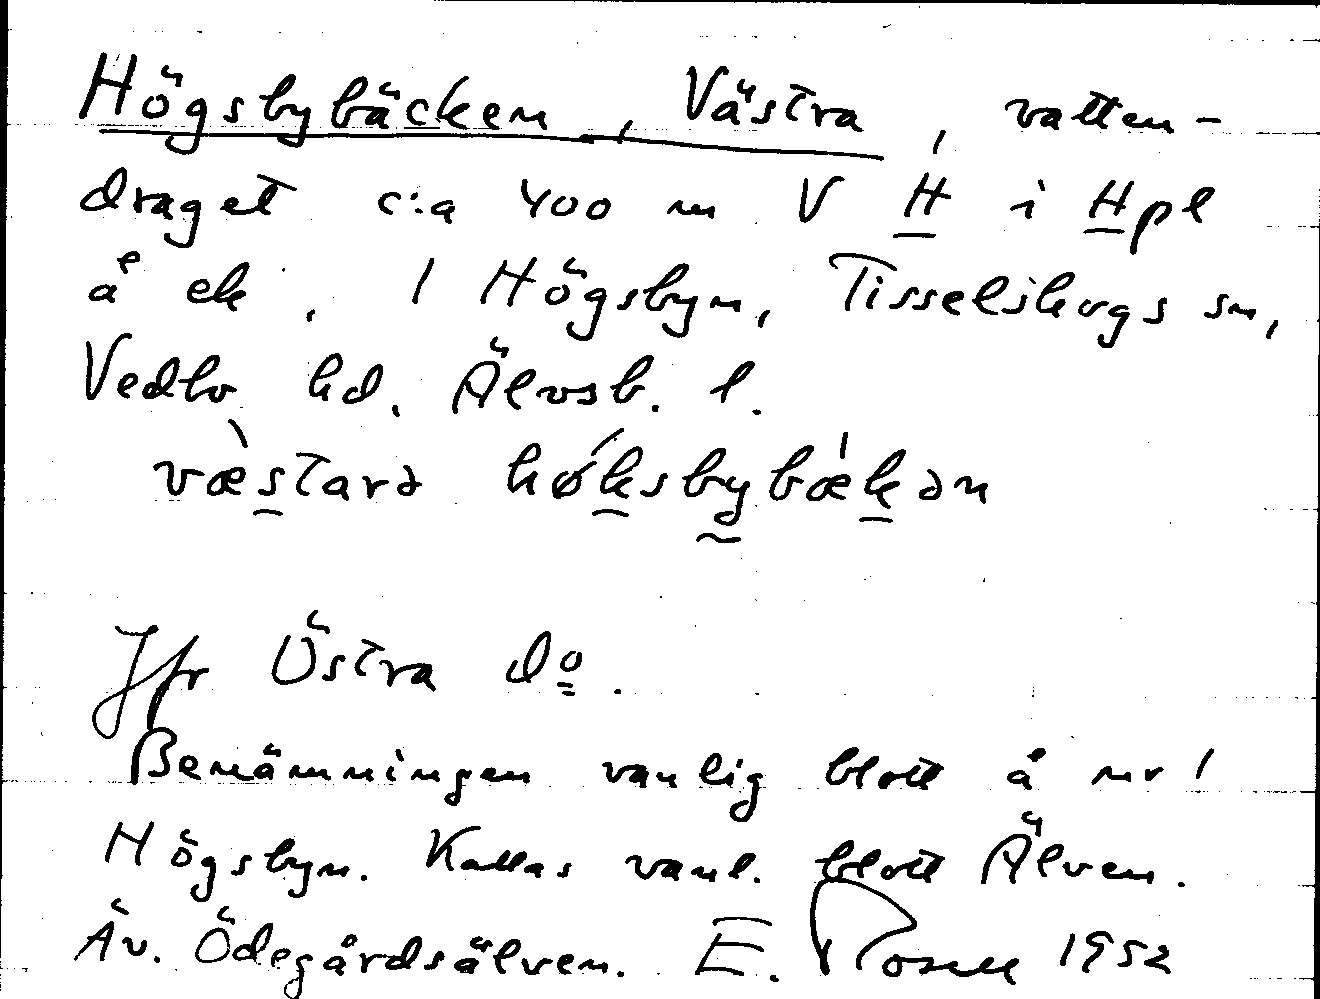 Högsbybäcken, Västra, vatten-
draget c:a 400 m V H i Hpl
å ek, 1 Högsbyn, Tisselskogs sn,
Vedbo hd. Älvsb. l.
væ̀starə hǿksbybæ̍kən
Jfr Östra dº.
Benämningen vanlig blott å nr 1
Högsbyn. Kallas vanl. blott Älven.
Äv. Ödegårdsälven. E. Rosell 1952